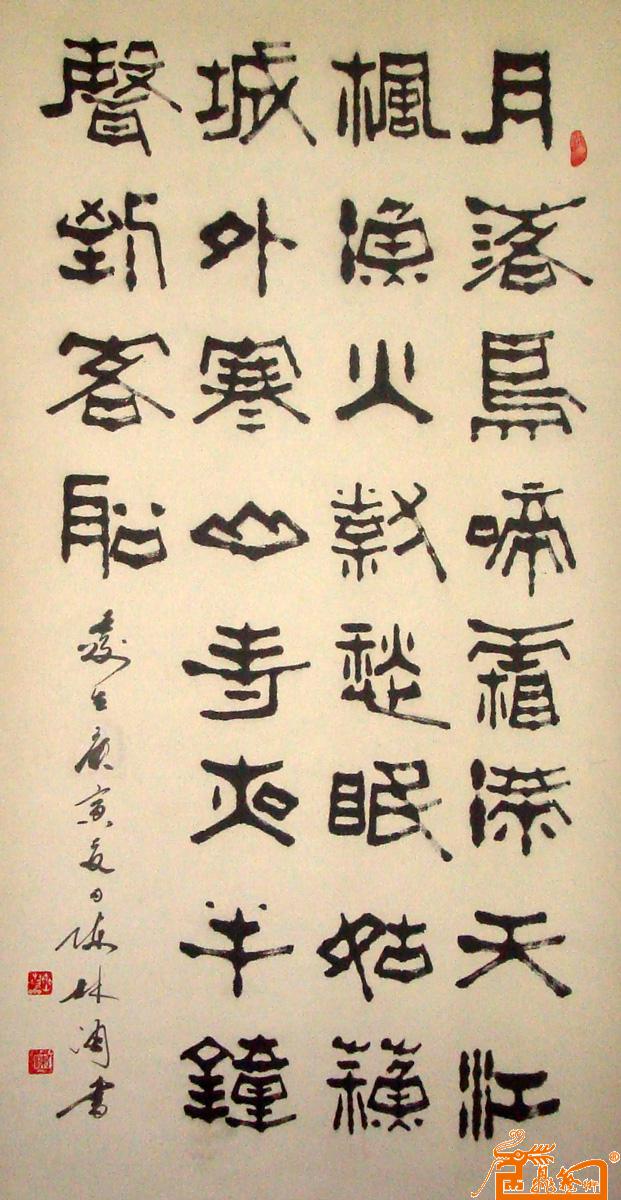 月落烏啼霜滿天江
楓漁火對愁眠姑蘇
城外寒山寺夜半鐘
聲到客船
歲在庚寅夏日陈林書